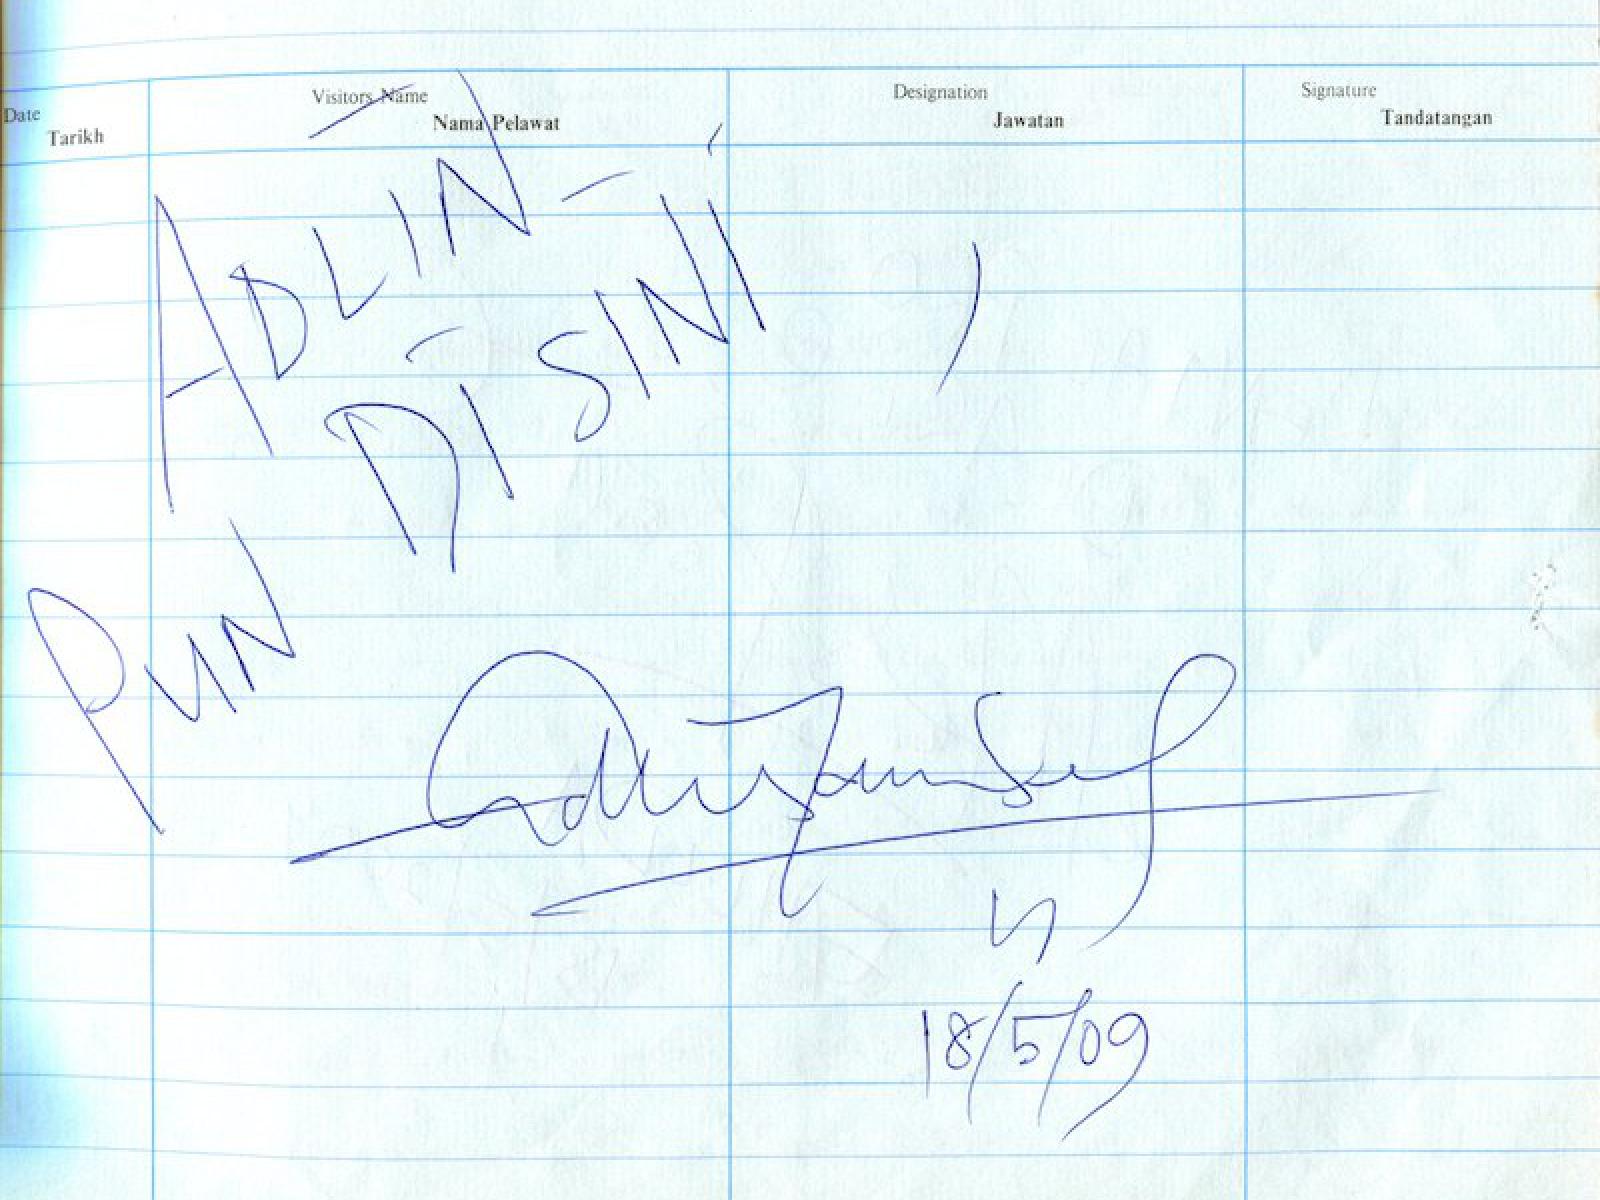 Date Visitors Name Designation Signature
Tarikh Nama Pelawat Jawatan Tandatangan
ADLIN
PUN DISINI
18/5/09